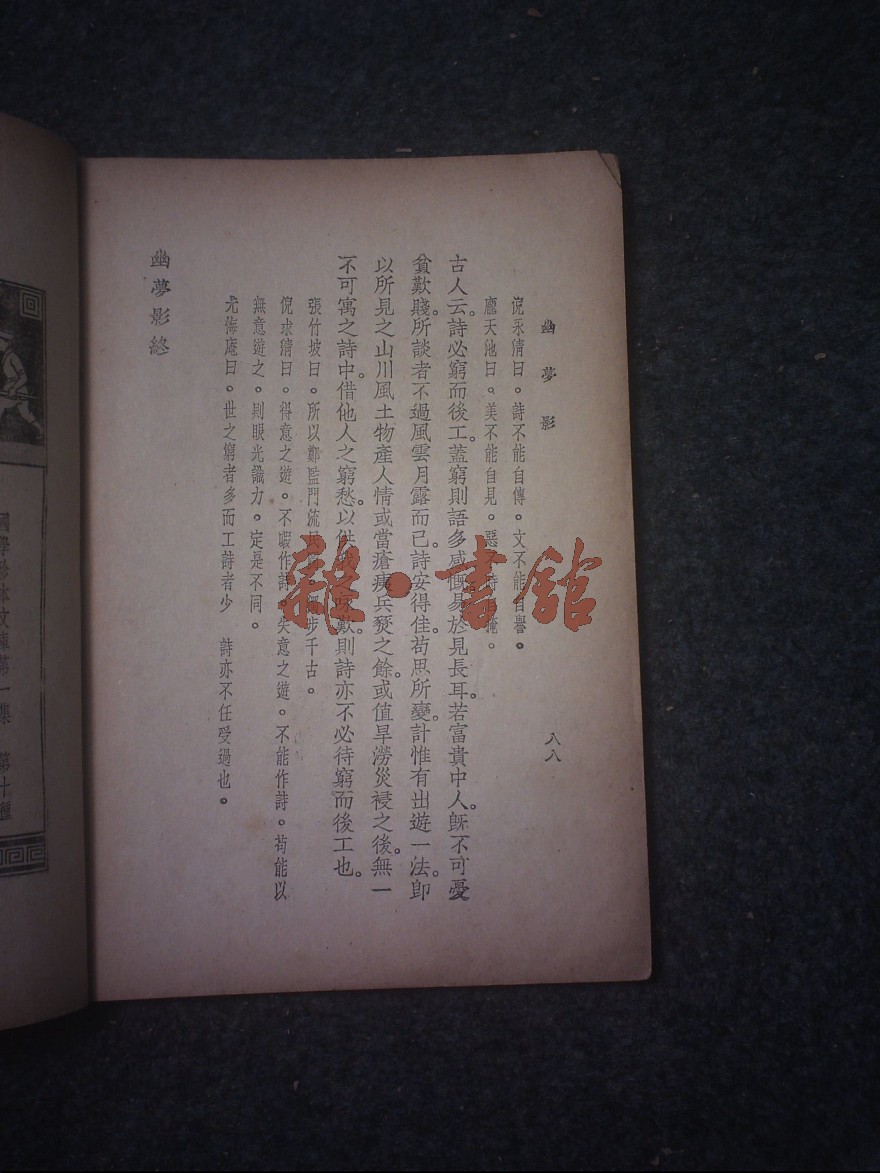 幽夢影
八八
倪永清曰。詩不能自傳。文不能自譽。
龐天池曰。美不能自見。惡
古人云。詩必窮而後工。蓋窮則語多感慨。易於見長耳。若富貴中人。旣不可憂
貧歎賤。所談者不過風雲月露而已。詩安得佳。苟思所變。計惟有出遊一法。卽
以所見之山川風土物產人情。或當瘡痍兵燹之餘。或值旱澇災祲之後。無一
不可寓之詩中。借他人之窮愁。以供我之咏歎。則詩亦不必待窮而後工也。
張竹坡曰。所以鄭監門流民步千古。
倪永淸曰。得意之遊。不暇作詩。失意之遊。不能作詩。苟能以
無意遊之。則眼光識力。定是不同。
尤悔庵曰。世之窮者多而工詩者少 詩亦不任受過也。
幽夢影終
國學珍本文庫第一集 第十種
雜·書館